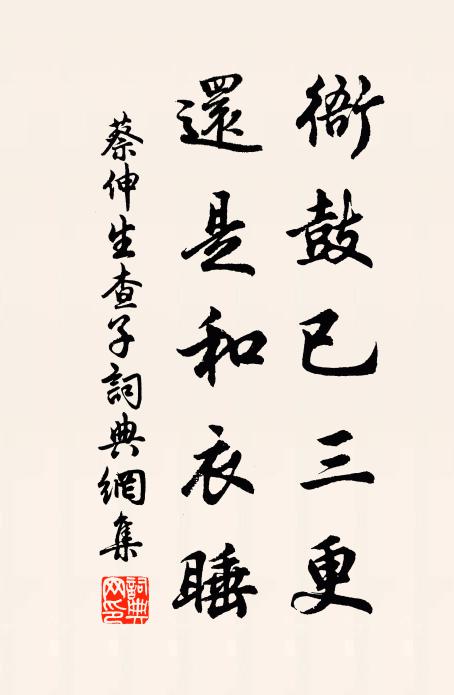 衙鼓已三更
還是和衣睡
蔡伸生查子詞典網集
詞典網印